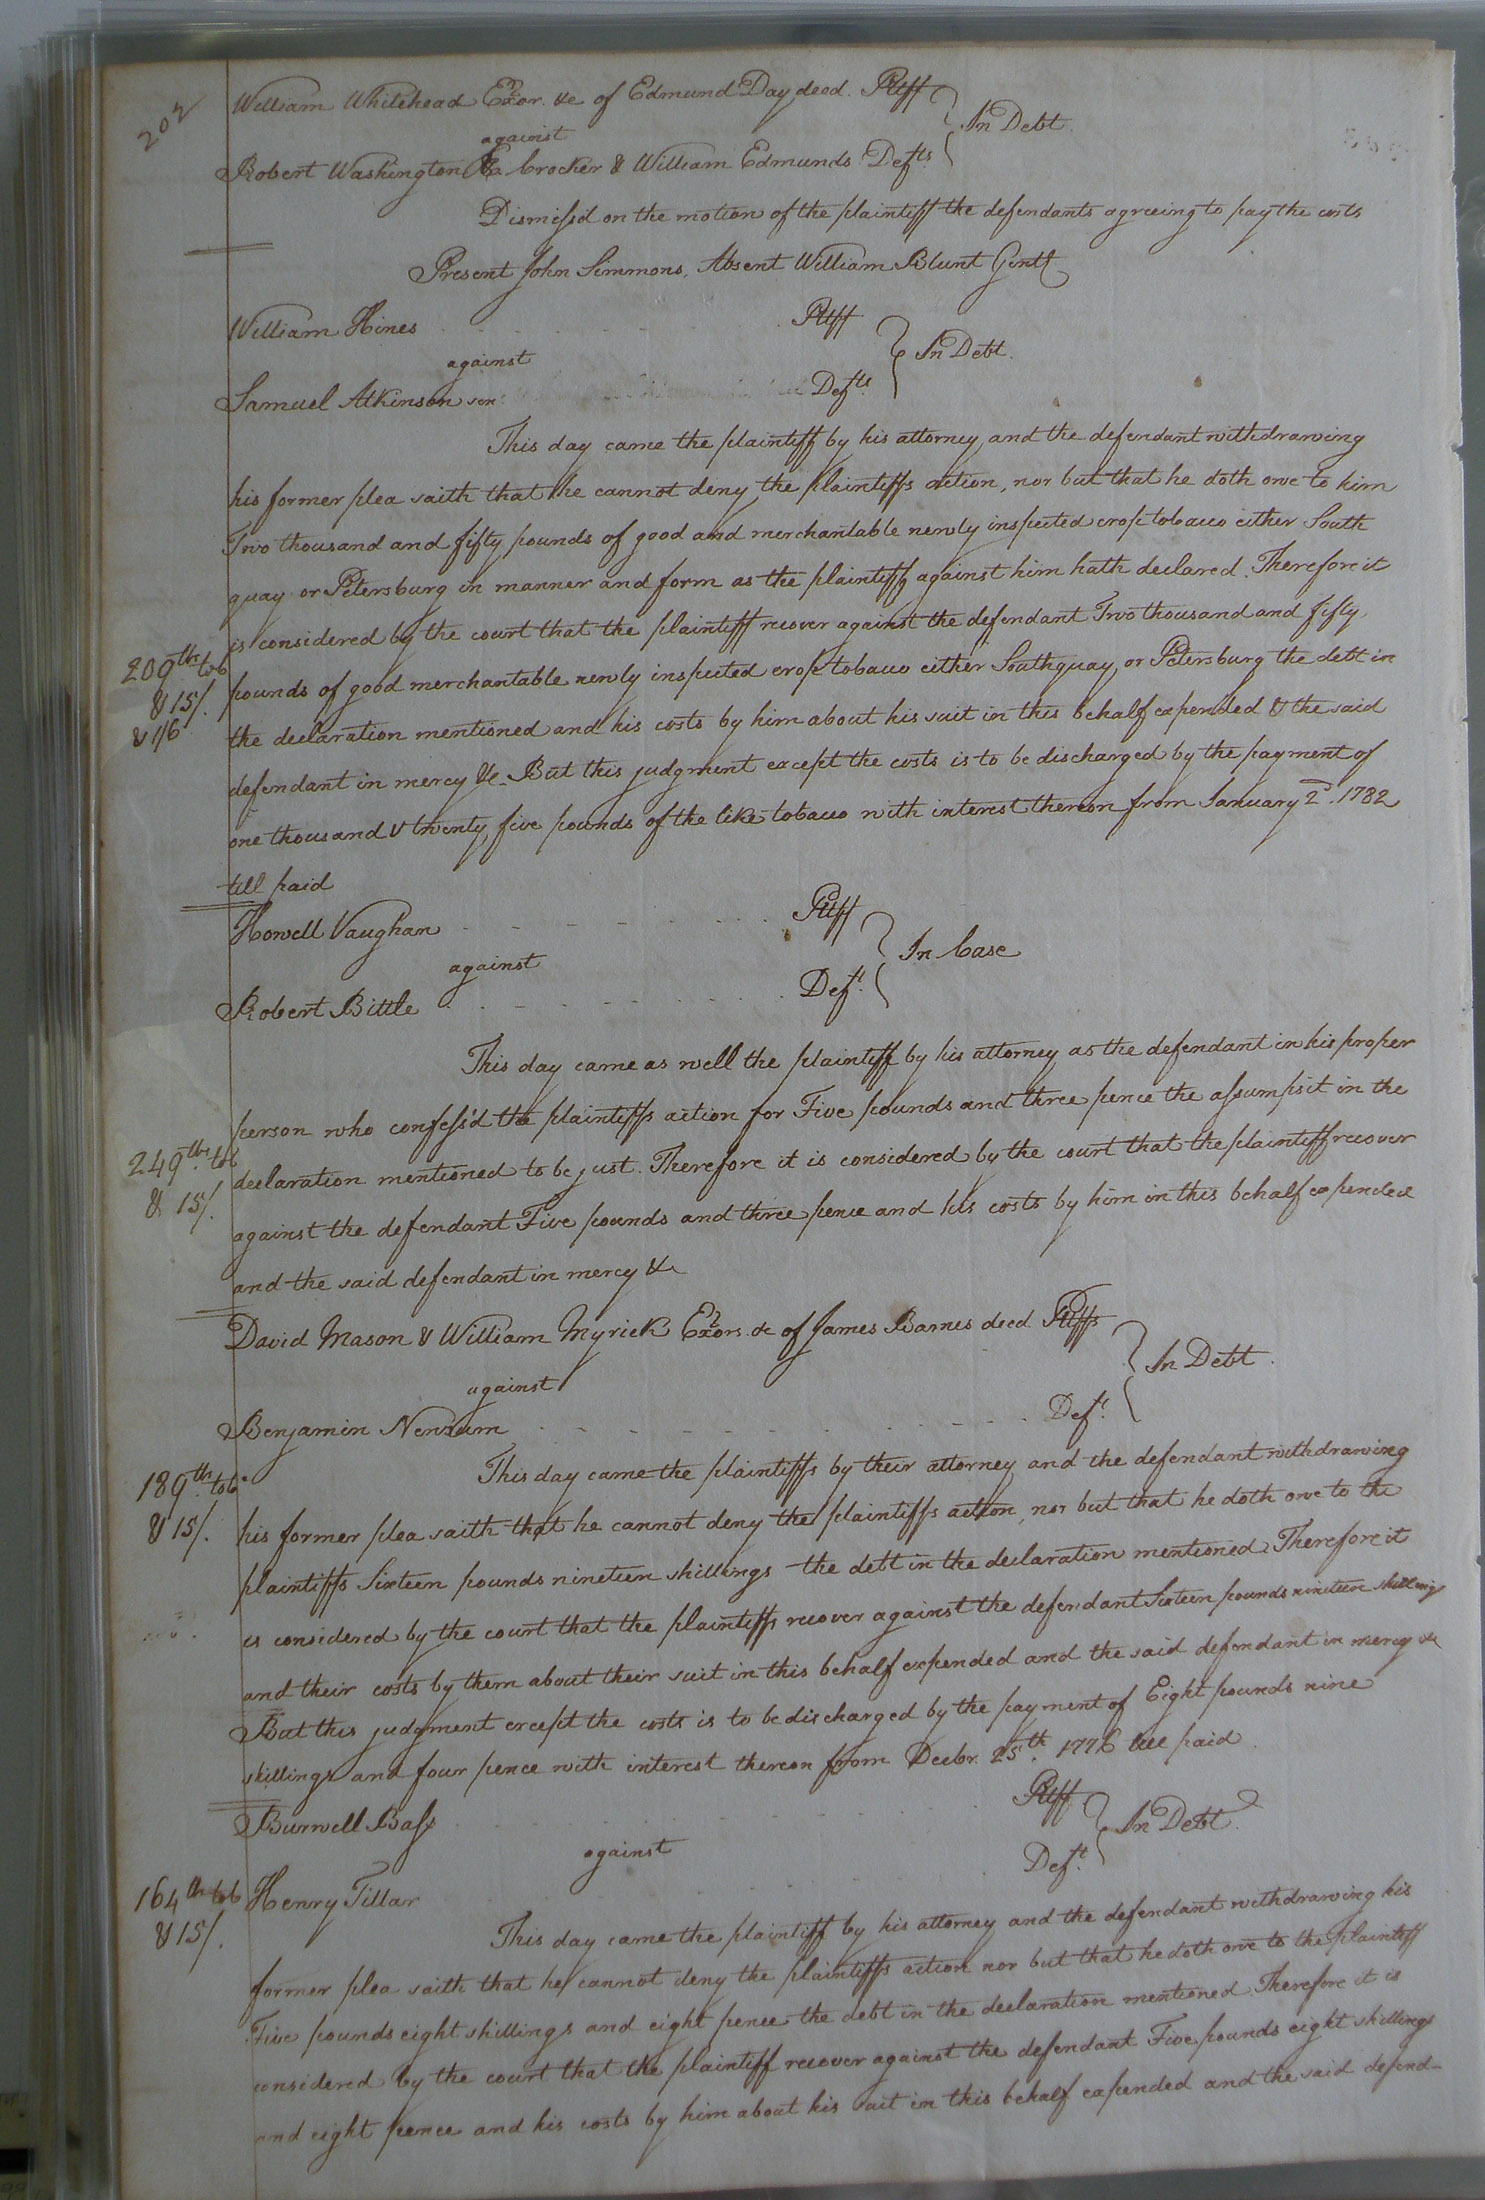 202
William Whitehead Exor. &c of Edmund Day decd. Pltff
against
In Debt.
Robert Washington Crocker & William Edmunds Defts.
Dismiss'd on the motion of the plaintiff the defendants agreeing to pay the costs
Present John Simmons, Absent William Blunt Gentl
William Hines Pltff
against
In Debt.
Samuel Atkinson senr. Defts.
This day came the plaintiff by his attorney and the defendant withdrawing
his former plea saith that he cannot deny the plaintiffs action, nor but that he doth owe to him
Two thousand and fifty pounds of good and merchantable newly inspected crop tobacco either South
quay or Petersburg in manner and form as the plaintiff against him hath declared. Therefore it
is considered by the court that the plaintiff recover against the defendant Two thousand and fifty
209 lbs tob
pounds of good merchantable newly inspected crop tobacco either Southquay or Petersburg the debt in
& 15/.
the declaration mentioned and his costs by him about his suit in this behalf expended & the said
& 1/6
defendant in mercy &c. But this judgment except the costs is to be discharged by the payment of
one thousand & twenty five pounds of the like tobacco with interest thereon from January 2d. 1782
till paid
Howell Vaughan Pltff
against
In Case
Robert Bittle Deft.
This day came as well the plaintiff by his attorney as the defendant in his proper
person who confess'd the plaintiffs action for Five pounds and three pence the assumpsit in the
249 lbs. tob
declaration mentioned to be just. Therefore it is considered by the court that the plaintiff recover
& 15/.
against the defendant Five pounds and three pence and his costs by him in this behalf expended
and the said defendant in mercy &c
David Mason & William Myrick Exors. &c of James Barnes decd Pltffs
against
In Debt.
Benjamin Newsum Deft.
This day came the plaintiffs by their attorney and the defendant withdrawing
189 lb. tob.
his former plea saith that he cannot deny the plaintiffs action, nor but that he doth owe to the
& 15/.
plaintiffs Sixteen pounds nineteen shillings the debt in the declaration mentioned. Therefore it
is considered by the court that the plaintiffs recover against the defendant Sixteen pounds nineteen shillings
and their costs by them about their suit in this behalf expended and the said defendant in mercy &c
But this judgment except the costs is to be discharged by the payment of Eight pounds nine
shillings and four pence with interest thereon from Decbr. 25th. 1776 till paid.
Burwell Bass Pltff
against
In Debt.
Deft.
164 lb tob
Henry Tillar
& 15/.
This day came the plaintiff by his attorney and the defendant withdrawing his
former plea saith that he cannot deny the plaintiffs action nor but that he doth owe to the plaintiff
Five pounds eight shillings and eight pence the debt in the declaration mentioned Therefore it is
considered by the court that the plaintiff recover against the defendant Five pounds eight shillings
and eight pence and his costs by him about his suit in this behalf expended and the said defend-